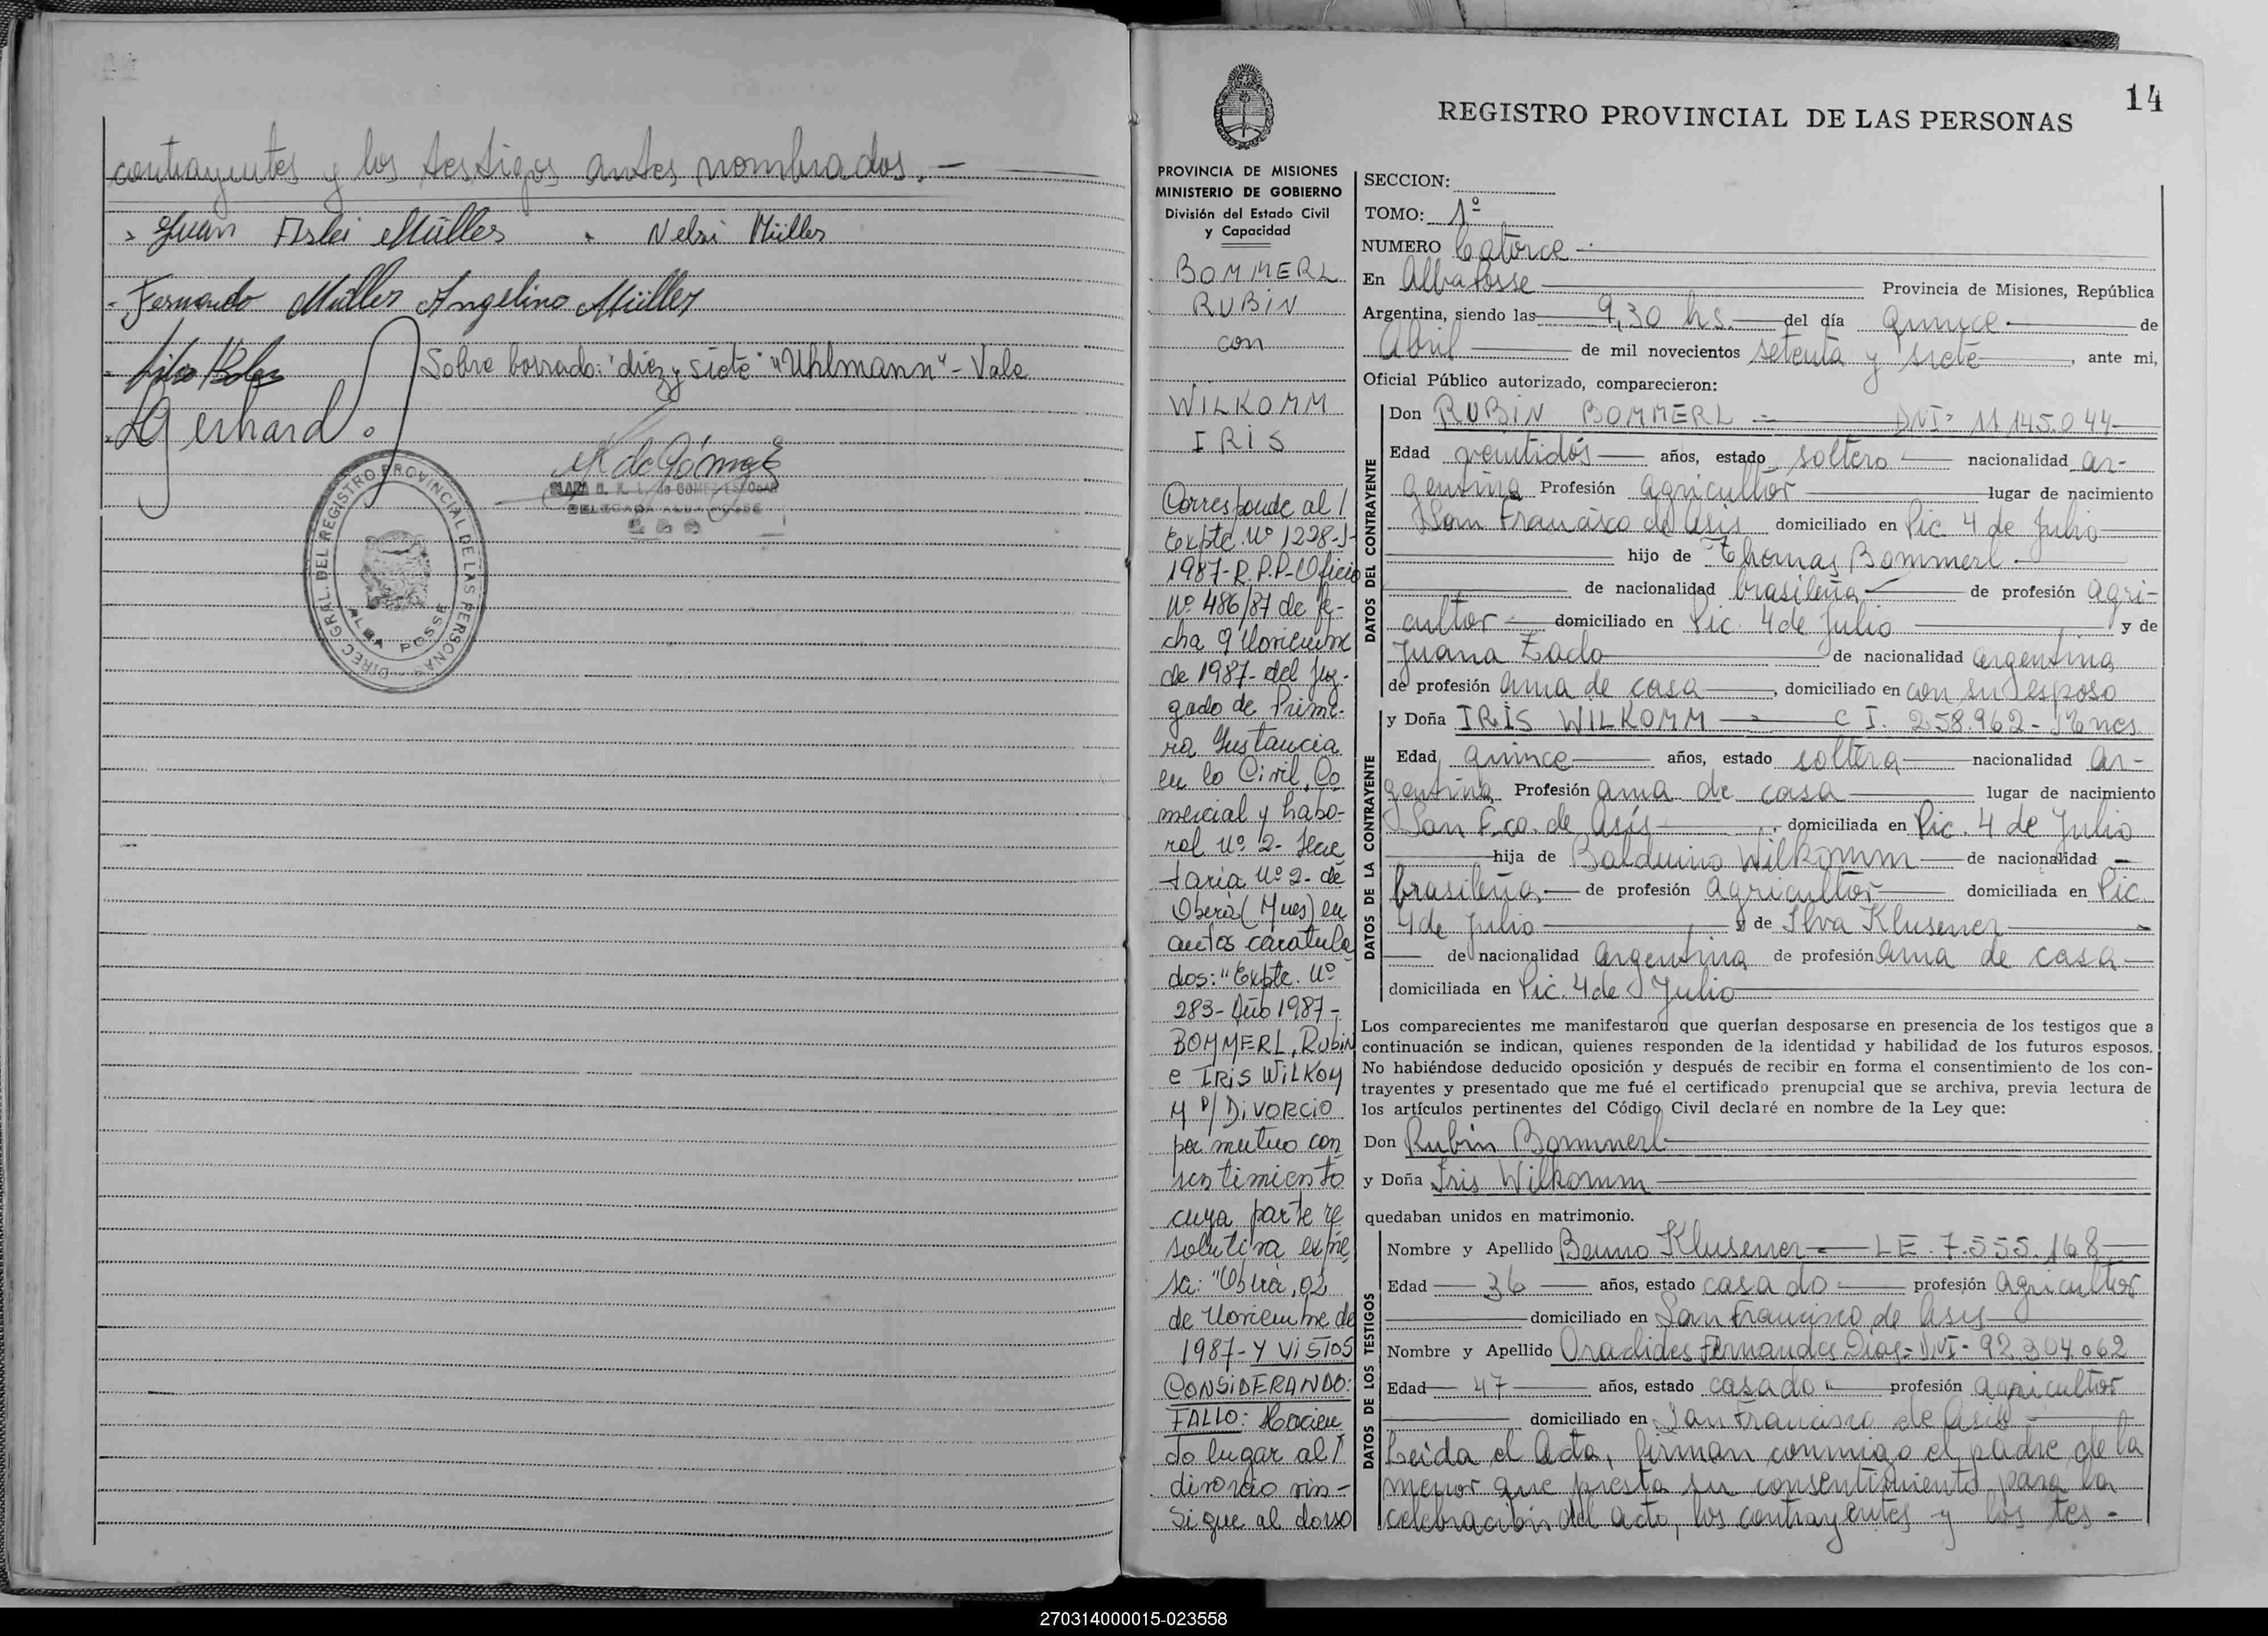 contrayentes y los testigos antes nombrados.-
Juan Aslei Müller Nelsi Müller
Fernando Müller Angelino Müller
Sobre borrado: "diez y siete" "Uhlmann" - Vale
Gerhard
K de Gómez
DELEGADA ALBA POSSE
DIREC. GRAL. DEL REGISTRO PROVINCIAL DE LAS PERSONAS
ALBA POSSE
14
REGISTRO PROVINCIAL DE LAS PERSONAS
PROVINCIA DE MISIONES
MINISTERIO DE GOBIERNO
División del Estado Civil
y Capacidad
BOMMERL
RUBIN
con
WILKOMM
IRIS
Corresponde al
Expte. Nº 1228-J-
1987- R.P.P- Oficio
Nº 486/87 de fe-
cha 9 Noviembre
de 1987- del Juz-
gado de Prime-
ra Instancia
en lo Civil, Co
mercial y Labo-
ral Nº 2- Secre
taria Nº 2- de
Oberá (Mnes) en
autos caratula
dos: "Expte. Nº
283- Año 1987-
BOMMERL, Rubin
e IRIS WILKOM
M P/ DIVORCIO
por mutuo con
sentimiento
cuya parte re
solutiva expre
sa: "Oberá, 02
de Noviembre de
1987- Y VISTOS
CONSIDERANDO:
FALLO: Hacien
do lugar al
divorcio vin-
Sigue al dorso
SECCION:
TOMO: 1º
NUMERO Catorce
En Alba Posse Provincia de Misiones, República
Argentina, siendo las 9,30 hs. del día quince de
Abril de mil novecientos setenta y siete, ante mi,
Oficial Público autorizado, comparecieron:
DATOS DEL CONTRAYENTE
Don RUBIN BOMMERL - DNI- 11.145.044
Edad veintidós años, estado soltero nacionalidad ar-
gentina Profesión agricultor lugar de nacimiento
San Francisco de Asis domiciliado en Pic. 4 de Julio
hijo de Thomas Bommerl
de nacionalidad brasileña de profesión agri-
cultor domiciliado en Pic. 4 de Julio y de
Juana Zado de nacionalidad argentina
de profesión ama de casa, domiciliado en con su esposo
DATOS DE LA CONTRAYENTE
y Doña IRIS WILKOMM - C I. 258.962- Mnes.
Edad quince años, estado soltera nacionalidad ar-
gentina Profesión ama de casa lugar de nacimiento
San Fco. de Asís, domiciliada en Pic. 4 de Julio
hija de Balduino Wilkomm de nacionalidad
brasileña de profesión agricultor domiciliada en Pic.
4 de Julio y de Ilva Klusener
de nacionalidad argentina de profesión ama de casa
domiciliada en Pic. 4 de Julio
Los comparecientes me manifestaron que querían desposarse en presencia de los testigos que a
continuación se indican, quienes responden de la identidad y habilidad de los futuros esposos.
No habiéndose deducido oposición y después de recibir en forma el consentimiento de los con-
trayentes y presentado que me fué el certificado prenupcial que se archiva, previa lectura de
los artículos pertinentes del Código Civil declaré en nombre de la Ley que:
Don Rubin Bommerl
y Doña Iris Wilkomm
quedaban unidos en matrimonio.
DATOS DE LOS TESTIGOS
Nombre y Apellido Benno Klusener - LE. 7.555.168
Edad 36 años, estado casado profesión agricultor
domiciliado en San Francisco de Asis
Nombre y Apellido Oraclides Fernandes Dias- DNI- 92.304.062
Edad 47 años, estado casado profesión agricultor
domiciliado en San Francisco de Asis
Leida el Acta, firman conmigo el padre de la
menor que presta su consentimiento para la
celebración del acto, los contrayentes y los tes-
270314000015-023558